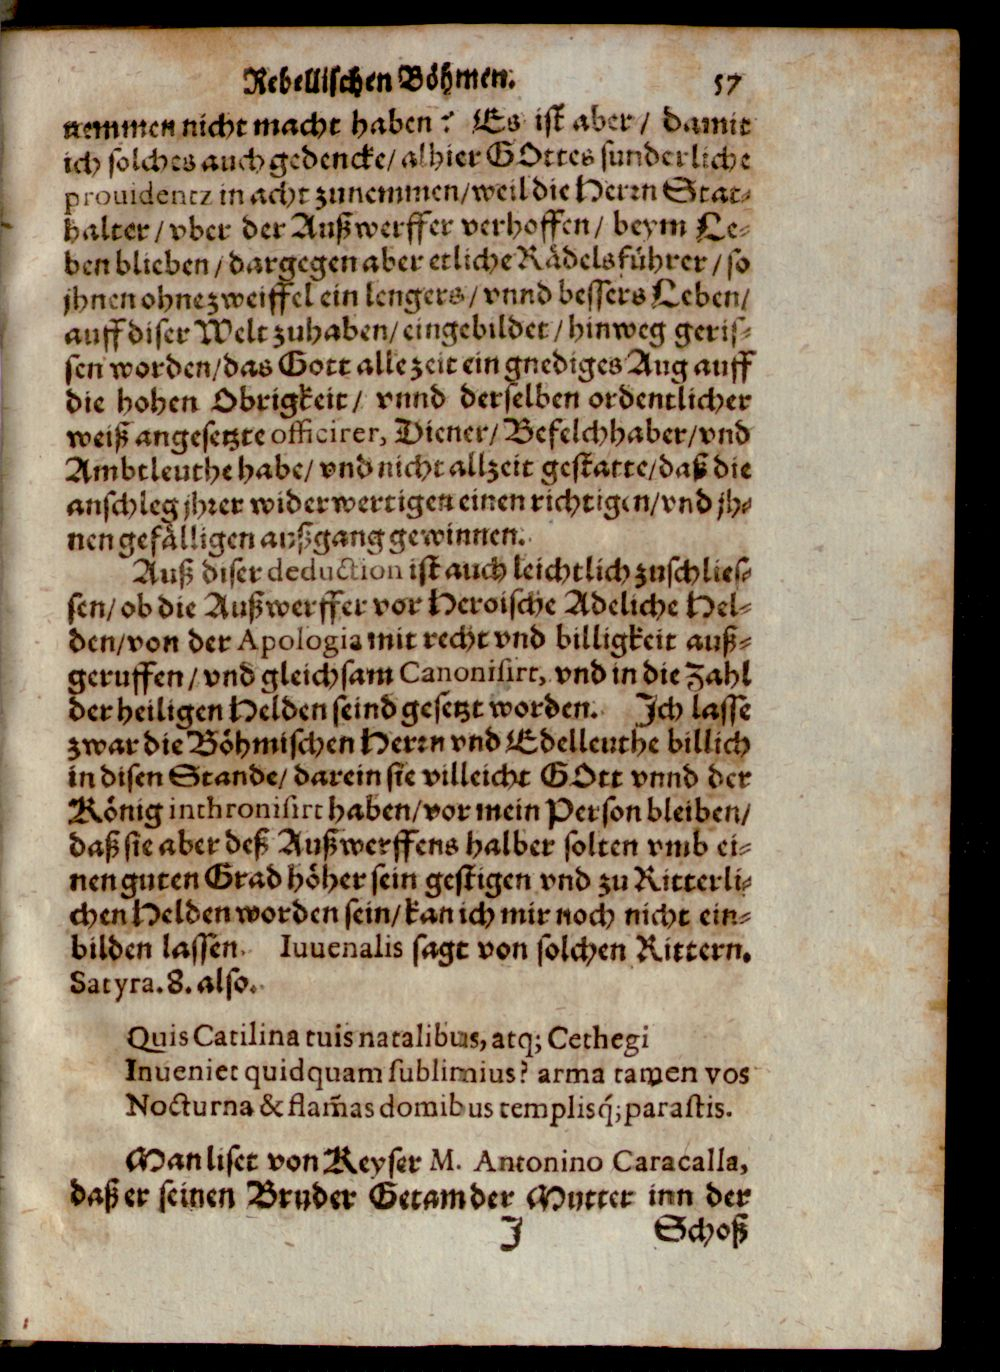 Rebellischen Böhmen. 57
nemmen nicht macht haben? Es ist aber / damit
ich solches auch gedencke / alhier GOttes sunderliche
prouidentz in acht zunemmen / weil die Herrn Stat-
halter / vber der Außwerffer verhoffen / beym Le-
ben blieben / dargegen aber etliche Rädelsführer / so
jhnen ohne zweiffel ein lengers / vnnd bessers Leben /
auff diser Welt zuhaben / eingebildet / hinweg geris-
sen worden / das Gott alle zeit ein gnediges Aug auff
die hohen Obrigkeit / vnnd derselben ordentlicher
weiß angesetzte officirer, Diener / Befelchhaber / vnd
Ambtleuthe habe / vnd nicht allzeit gestatte / daß die
anschleg jhrer widerwertigen einen richtigen / vnd jh-
nen gefälligen außgang gewinnen.
Auß diser deduction ist auch leichtlich zuschlies-
sen / ob die Außwerffer vor Heroische Adeliche Hel-
den / von der Apologia mit recht vnd billigkeit auß-
geruffen / vnd gleichsam Canonisirt, vnd in die Zahl
der heiligen Helden seind gesetzt worden. Ich lasse
zwar die Böhmischen Herrn vnd Edelleuthe billich
in disen Stande / darein sie villeicht GOtt vnnd der
König inthronisirt haben / vor mein Person bleiben /
daß sie aber deß Außwerffens halber solten vmb ei-
nen guten Grad höher sein gestigen vnd zu Ritterli-
chen Helden worden sein / kan ich mir noch nicht ein-
bilden lassen. Iuuenalis sagt von solchen Rittern.
Satyra. 8. also.
Quis Catilina tuis natalibus, atq; Cethegi
Inueniet quidquam sublimius? arma tamen vos
Nocturna & flam̃as domibus templisq́; parastis.
Man liset von Keyser M. Antonino Caracalla,
daß er seinen Bruder Getam der Mutter inn der
J Schoß